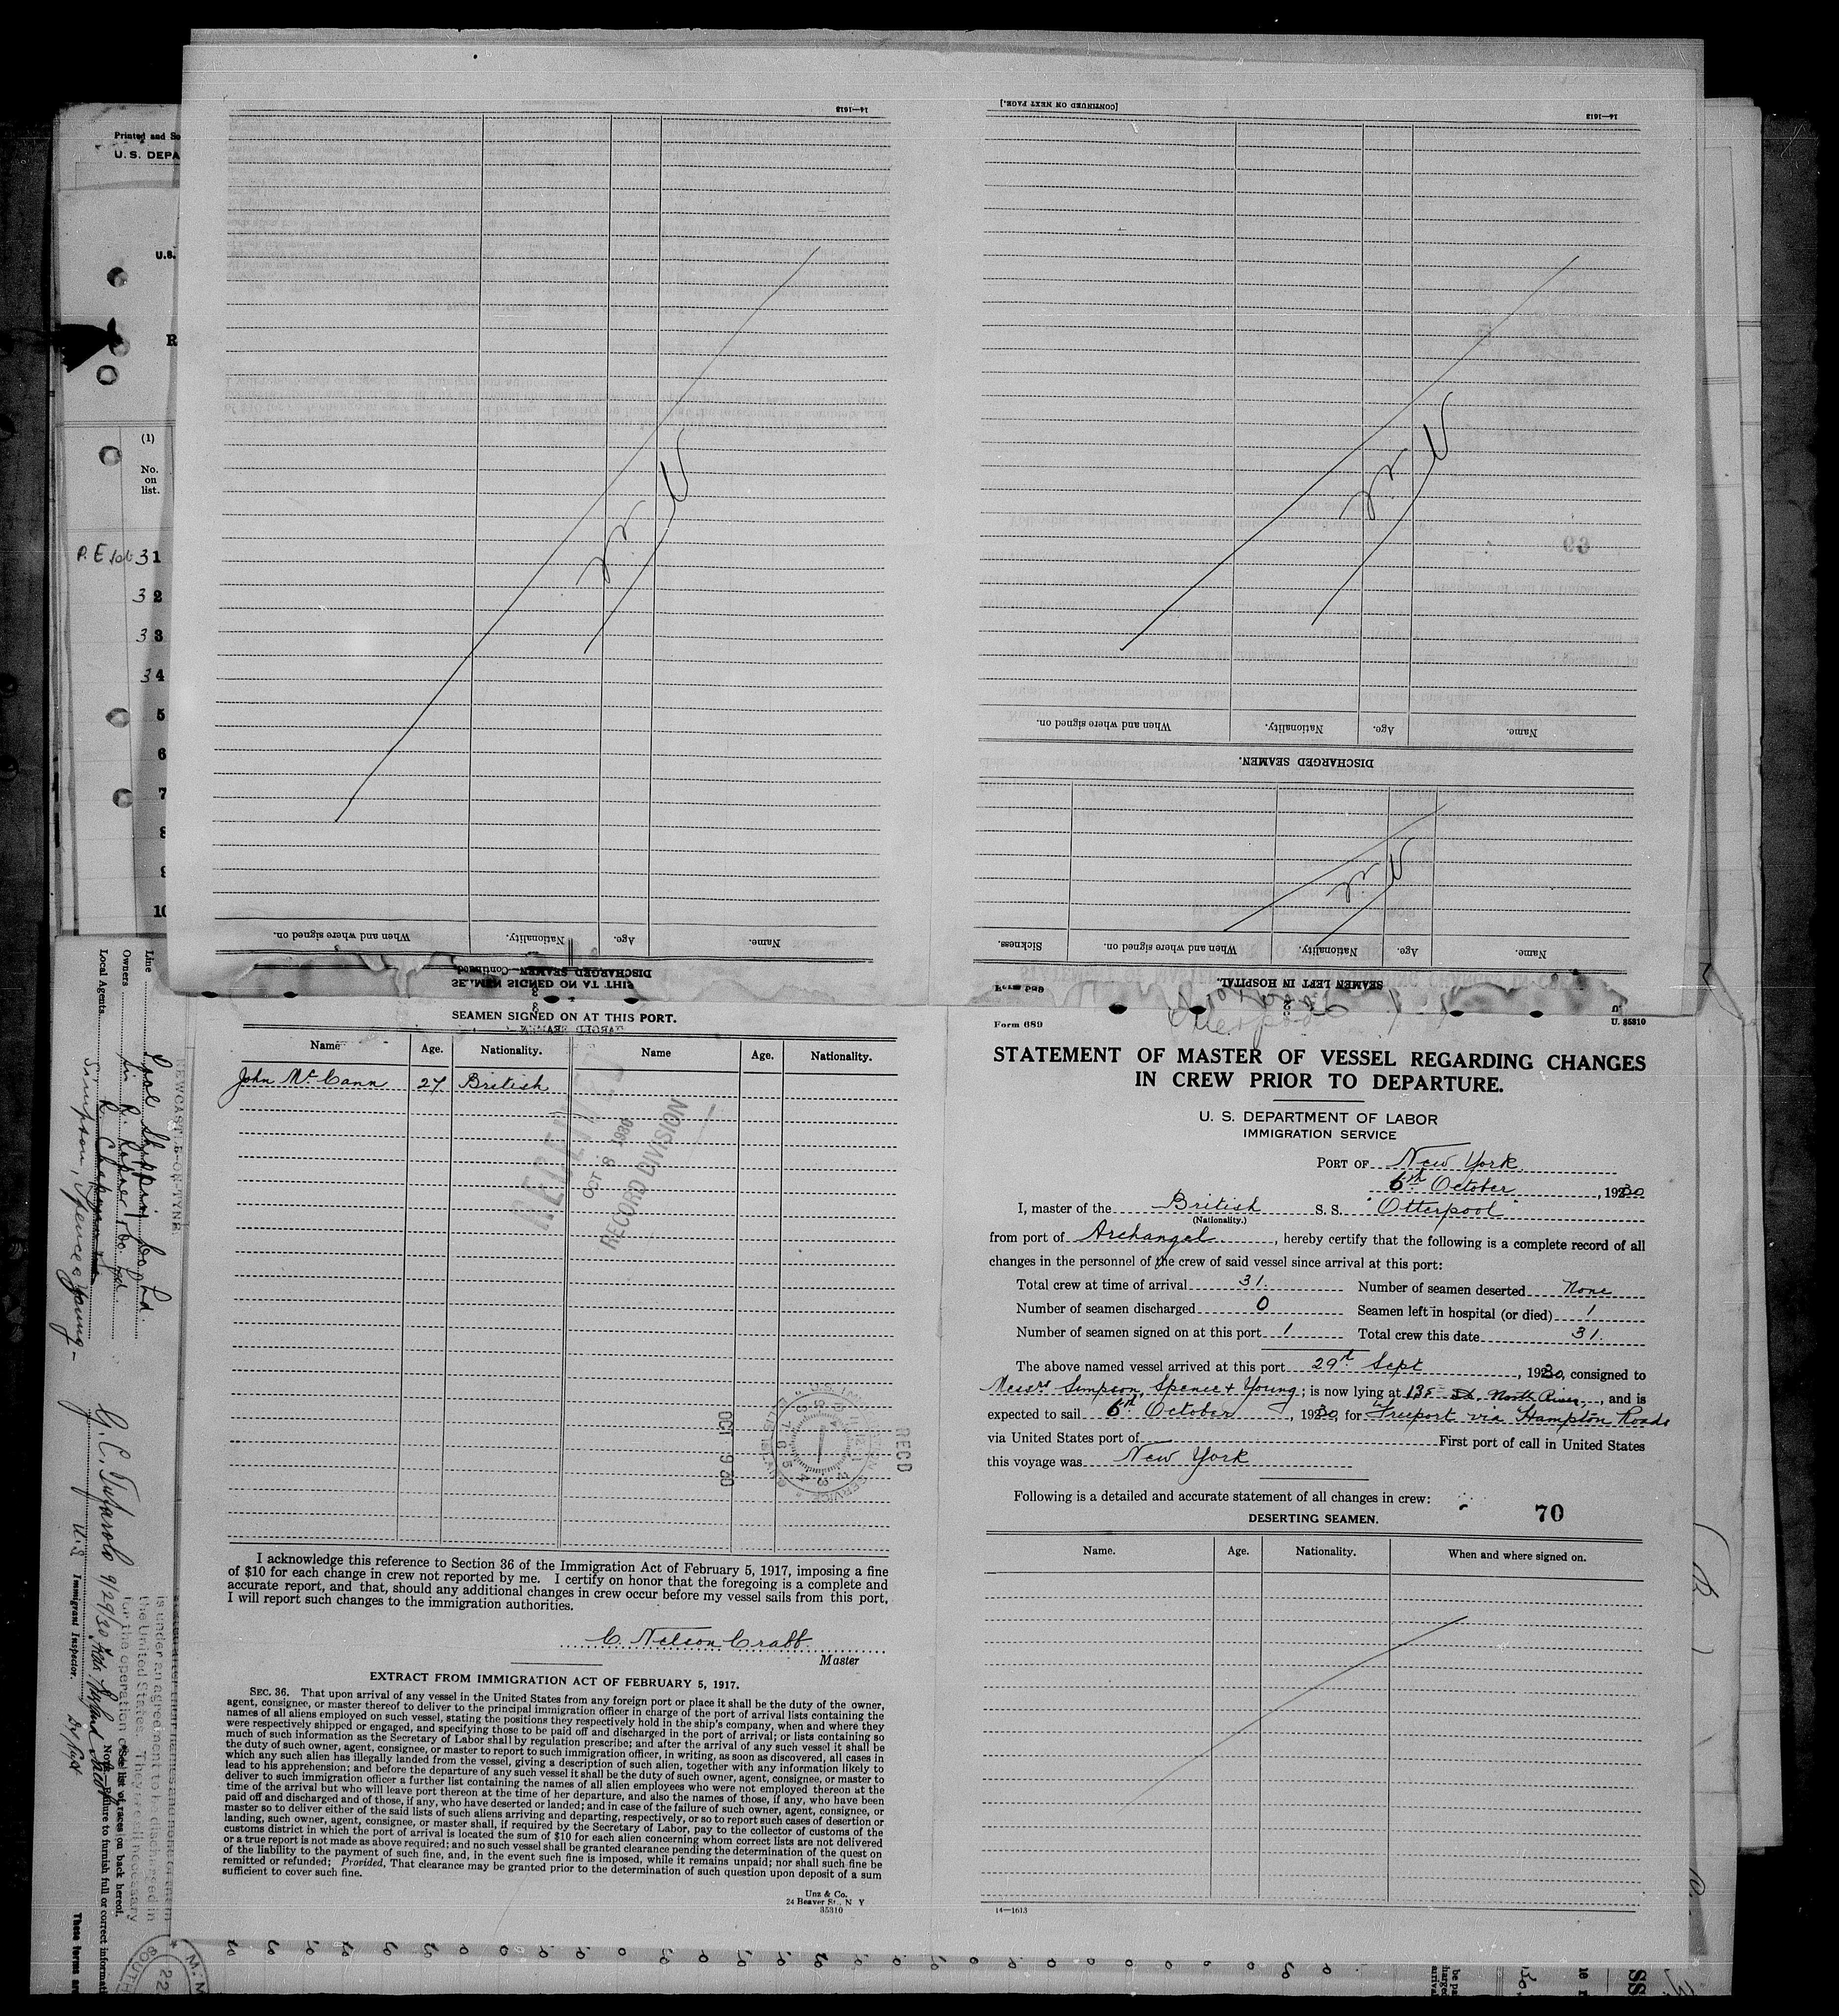 14—1613
[CONTINUED ON NEXT PAGE.]
14—1613
When and where signed on.
Nationality.
Age.
Name.
DISCHARGED SEAMEN—Continued
SEAMEN SIGNED ON AT THIS
When and where signed on.
Nationality.
Age.
Name.
DISCHARGED SEAMEN.
Sickness.
When and where signed on.
Nationality.
Age.
Name.
SEAMEN LEFT IN HOSPITAL.
Form 689
Printed and
U. S. DEPA
U.S.
R
(1)
No.
on
list.
31
32
33
34
5
6
7
8
9
10
Line
Owners
Local Agents
Simpson, Spence & Young
U.S. Immigrant Inspector.
See list of races on back hereof.
These forms
SEAMEN SIGNED ON AT THIS PORT.
Name Age. Nationality. Name Age. Nationality.
John McCann 27 British
RECEIVED
OCT 8 1930
RECORD DIVISION
OCT 9 30
RECD
I acknowledge this reference to Section 36 of the Immigration Act of February 5, 1917, imposing a fine
of $10 for each change in crew not reported by me. I certify on honor that the foregoing is a complete and
accurate report, and that, should any additional changes in crew occur before my vessel sails from this port,
I will report such changes to the immigration authorities.
C. Nelson Crabb
Master
EXTRACT FROM IMMIGRATION ACT OF FEBRUARY 5, 1917.
SEC. 36. That upon arrival of any vessel in the United States from any foreign port or place it shall be the duty of the owner,
agent, consignee, or master thereof to deliver to the principal immigration officer in charge of the port of arrival lists containing the
names of all aliens employed on such vessel, stating the positions they respectively hold in the ship's company, when and where they
were respectively shipped or engaged, and specifying those to be paid off and discharged in the port of arrival; or lists containing so
much of such information as the Secretary of Labor shall by regulation prescribe; and after the arrival of any such vessel it shall be
the duty of such owner, agent, consignee, or master to report to such immigration officer, in writing, as soon as discovered, all cases in
which any such alien has illegally landed from the vessel, giving a description of such alien, together with any information likely to
lead to his apprehension; and before the departure of any such vessel it shall be the duty of such owner, agent, consignee, or master to
deliver to such immigration officer a further list containing the names of all alien employees who were not employed thereon at the
time of the arrival but who will leave port thereon at the time of her departure, and also the names of those, if any, who have been
paid off and discharged and of those, if any, who have deserted or landed; and in case of the failure of such owner, agent, consignee, or
master so to deliver either of the said lists of such aliens arriving and departing, respectively, or so to report such cases of desertion or
landing, such owner, agent, consignee, or master shall, if required by the Secretary of Labor, pay to the collector of customs of the
customs district in which the port of arrival is located the sum of $10 for each alien concerning whom correct lists are not delivered
or a true report is not made as above required; and no such vessel shall be granted clearance pending the determination of the quest on
of the liability to the payment of such fine, and, in the event such fine is imposed, while it remains unpaid; nor shall such fine be
remitted or refunded; Provided, That clearance may be granted prior to the determination of such question upon deposit of a sum
sufficient to cover such fine.
Unz & Co.
24 Beaver St., N Y
35310
Form 689
U. 35310
STATEMENT OF MASTER OF VESSEL REGARDING CHANGES
IN CREW PRIOR TO DEPARTURE.
U. S. DEPARTMENT OF LABOR
IMMIGRATION SERVICE
PORT OF New York
6th October, 1930
I, master of the British S. S. "Otterpool"
(Nationality.)
from port of Archangel, hereby certify that the following is a complete record of all
changes in the personnel of the crew of said vessel since arrival at this port:
Total crew at time of arrival 31. Number of seamen deserted None
Number of seamen discharged 0 Seamen left in hospital (or died) 1
Number of seamen signed on at this port 1 Total crew this date 31.
The above named vessel arrived at this port 29th Sept, 1930, consigned to
Messrs Simpson, Spence & Young; is now lying at 135 St. North River, and is
expected to sail 6th October, 1930, for Freeport via Hampton Roads
via United States port of First port of call in United States
this voyage was New York
Following is a detailed and accurate statement of all changes in crew:
70
DESERTING SEAMEN.
Name. Age. Nationality. When and where signed on.
14—1613